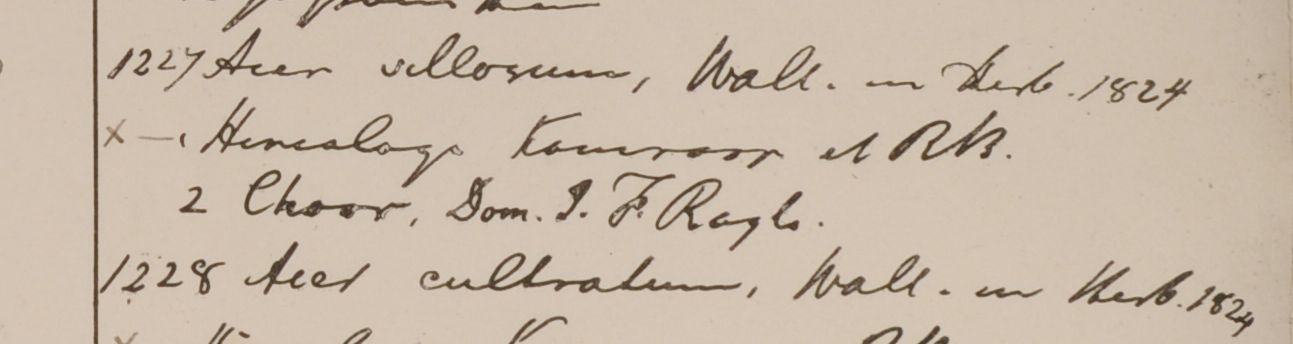 1227 Acer villosum, Wall. in Herb. 1824
x — . Himalaya Kamroop et RB.
2 Choor, Dom. J. F. Royle.
1228 Acer cultratum, Wall. in Herb. 1824